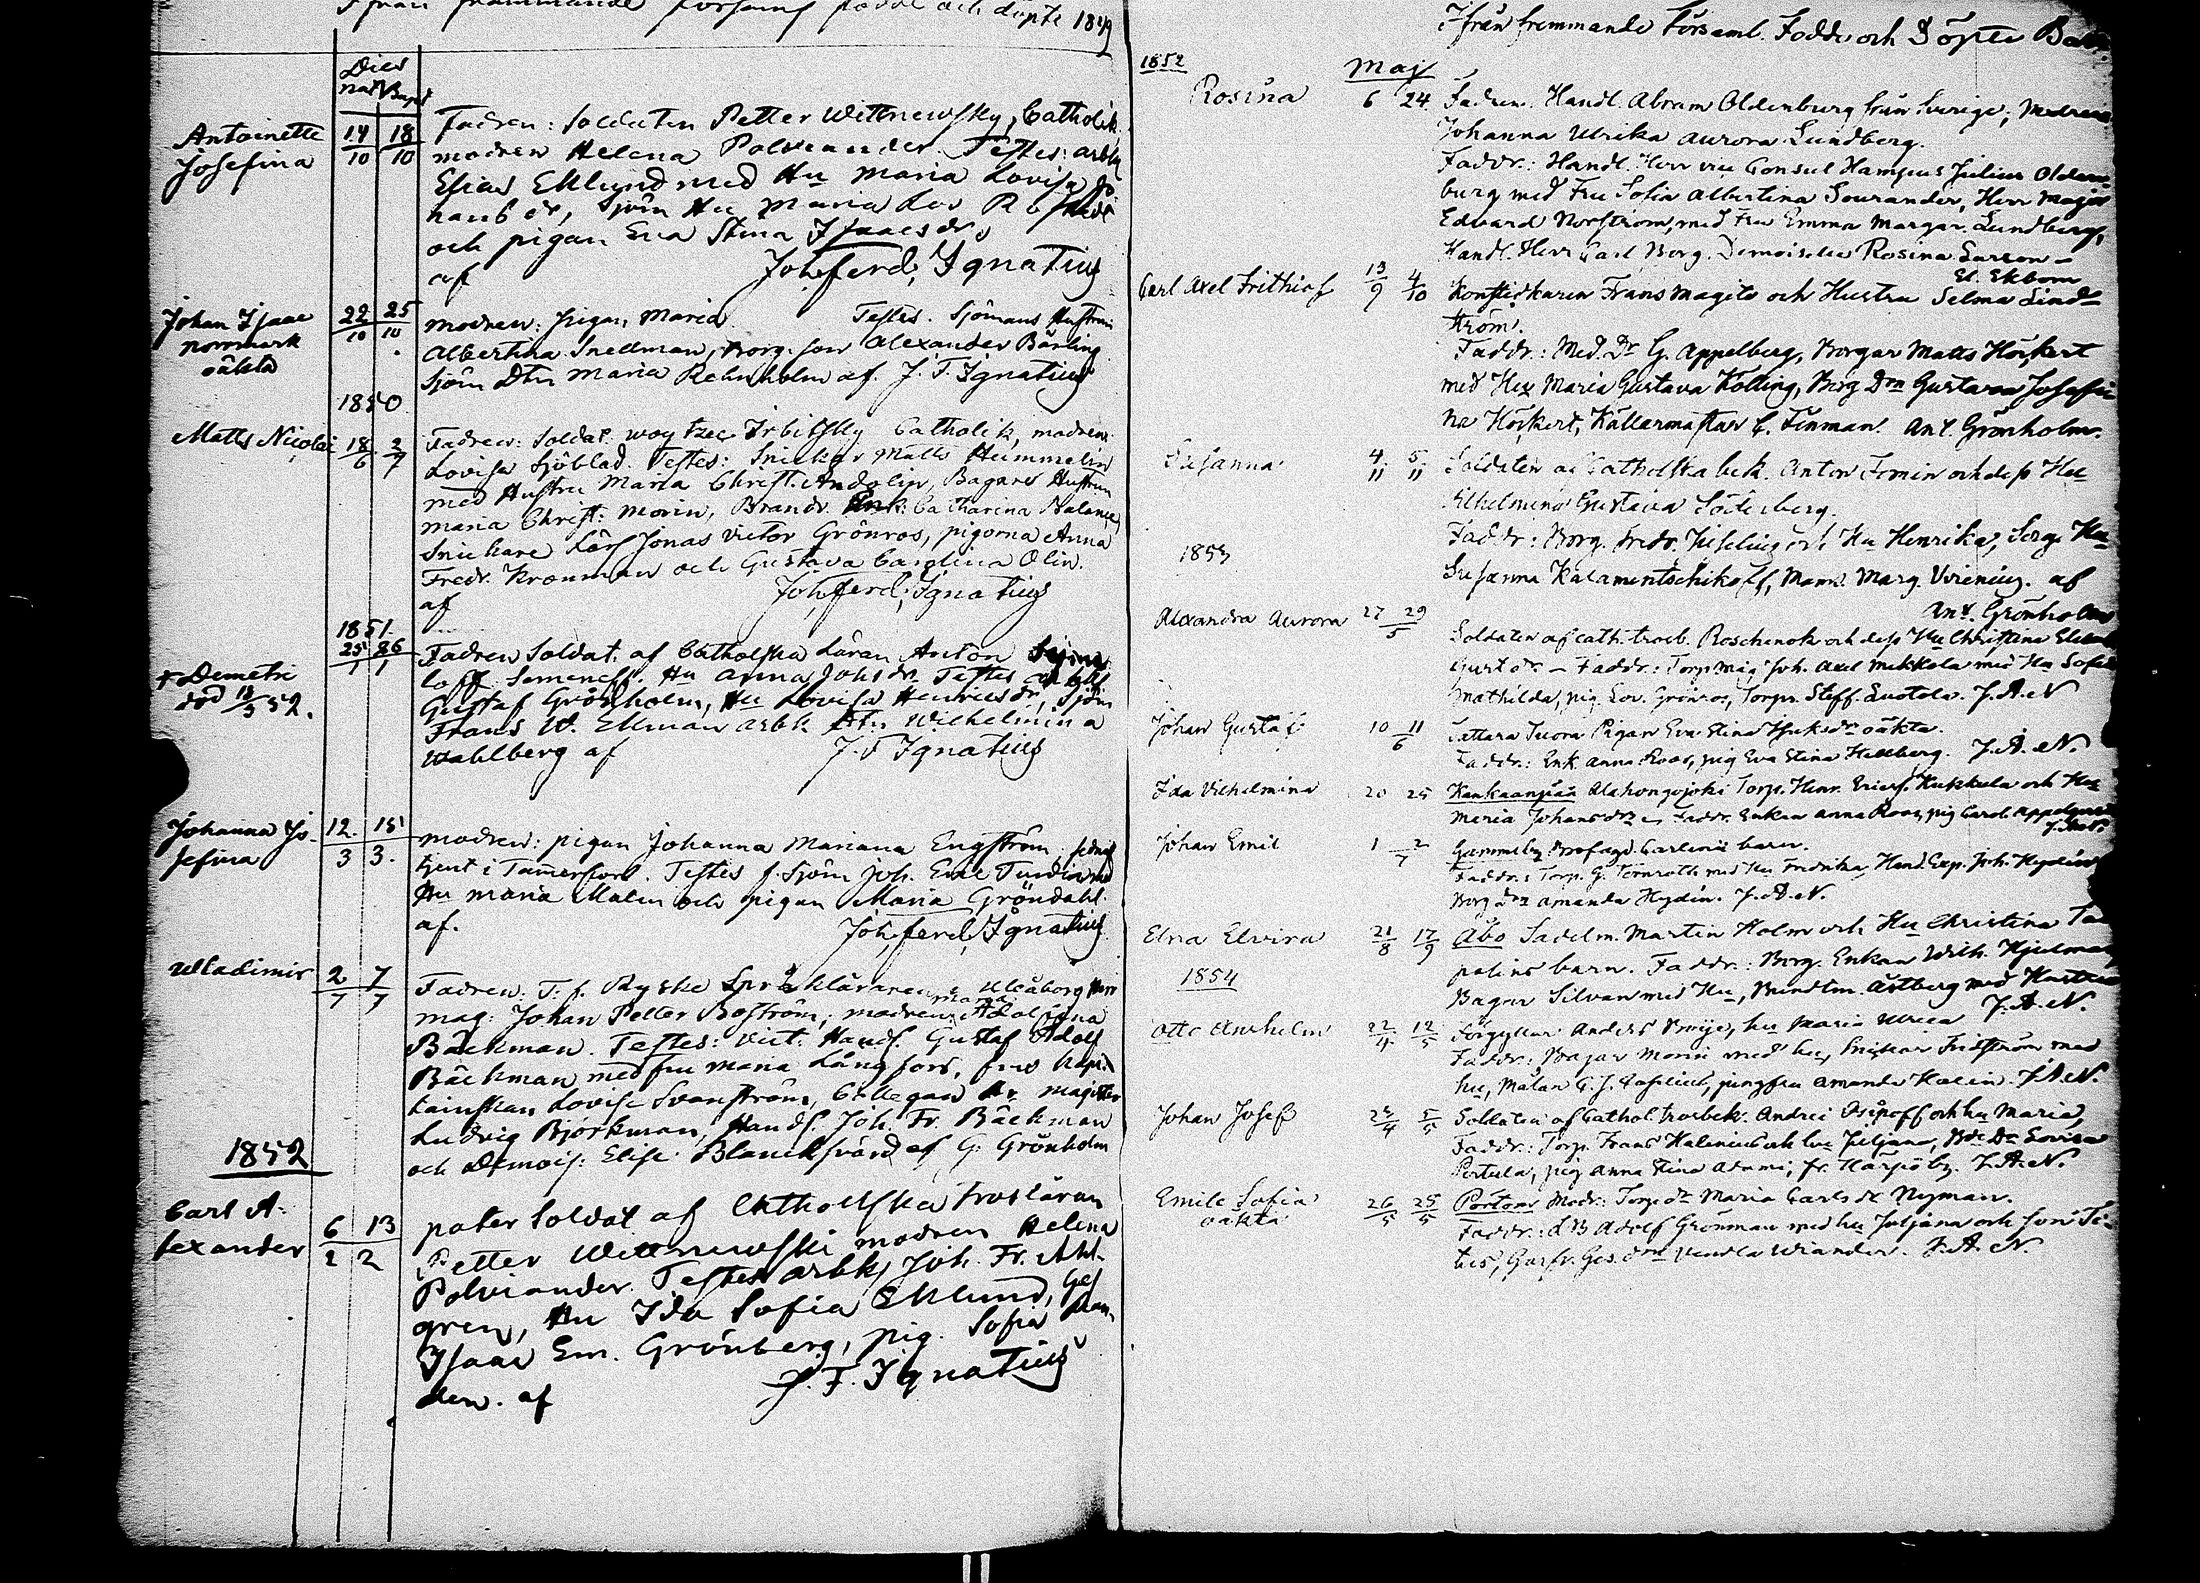 ifrån främmande församl födde och döpte 1849
Dies
nat Bapt
Antoinette 14 18 Fadren: Soldaten Petter Wittnewsky, Catholik.
Josefina 10 10 modren Helena Polviander. Testes: arbk
Esias Eklund med Hu Maria Lovisa Jo
hansdr, Sjöm Hu Maria Lov
och pigan Eva Stina Isaacsdr,
af Joh. Ferd. Ignatius
Johan Isaac 22 25 modren: pigan Maria Testes. Sjömans Hustrun
Normark 10 10 Albertina Snellman, borg. son Alexander Bärling
oäkta Sjöm Dtn Maria Rehnholm af J. F. Ignatius
1850
Matts Nicolai 18 2 Fadren: Soldat. Catholik, modren
6 7 Lovisa Sjöblad. Testes: Snickar Matts Hummelin
med Hustru Maria Christ. Andelin, Bagare Hustrun
Maria Christ: Morin, Brandv. Enk: Catharina
Snickare Lärl Jonas Victor Grönroos, pigorna Anna
Fredr. Kronman och Gustava Carolina Olin.
af Joh. Ferd. Ignatius
1851.
25 26 Fadren Soldat. af Catholska Läran Anton
+ Demetri 1 1 Semeneff. Hu Anna Johsdr. Testes
död 18/3 52. Gustaf Grönholm, Hu Lovisa Henricsdr, Sjöm
Frans W. Ekman arbk Dtr Wilhelmina
Wahlberg af J. F. Ignatius
Johanna Jo- 12. 15 modren: pigan Johanna Mariana Engström
sefina 3 3. tjent i Tammerfors. Testes f. Sjöm Joh. Eric
Hu Maria Malin och pigan Maria Gröndahl.
af. Joh. Ferd. Ignatius
Wladimir 2 7 Fadren: T. f. Ryske Språkläraren i Uleåborg Herr
7 7 mag: Johan Petter Boström; modren Maria Adolfina
Bäckman. Testes: Vict. Handl. Gustaf Adolf
Bäckman med fru Maria Långfors, fru Kap-
tainskan Lovisa Svanström, Collegan Hr Magister
Ludvig Björkman, Handl. Joh. Fr. Bäckman
1852 och Demois: Elise Blanksvärd af G. Grönholm
Carl A- 6 13 pater Soldat af Catholska trosläran
lexander 2 2 Petter Wittnewski modren Helena
Polviander. Testes arbk, Joh. Fr. Ahl-
gren, Hu Ida Sofia Eklund, Ges
Isaac Em. Grönberg, pig. Sofia
den. af J. F. Ignatius
Ifrån fremmande Församl. Födde och Döpte Barn.
1852 Maj
Rosina 6 24 Fadren. Handl. Abram Oldenburg från Sverige, Modren
Johanna Ulrika Aurora Lundberg.
Faddr.: Handl. Herr vice Consul Hampus Julius Olden-
burg med Fru Sofia Albertina Sourander, Herr Major
Edvard Norström, med Fru Emma Margar. Lundberg,
Handl. Herr Carl Borg. Demoiselle Rosina Lurson -
El. Ekbom
Carl Axel Frithiof 13/9 4/10 Konstidkaren Frans Magito och Hustru Selma Lind-
ström.
Faddr.: Med. Dr G. Appelberg, Borgar Matts Höckert
med Hu Maria Gustava Kölling, Borg Drn Gustava Josefi-
na Höckert, Källarmästar C. Finman. Ant. Grönholm.
Susanna 4/11 5/11 Soldaten af Catholska bek. Anton Fomin och dess Hu
Vilhelmina Gustava Söderberg.
1853 Faddr: Borg. Fredr. Kiseling och Hu Henrika, Serg: Hu
Susanna Kalamentschikoff, Mams. Marg. Virenius. af
Ant. Grönholm
Alexandra Aurora 27 29/5 Soldaten af cath. trosb. Roschenok och dess Hu Christina
Gust dr. - Faddr: Torp måg Joh. Axel Mikkola med Hu Sofia
Mathilda, pig Lov. Grönroos, Torpr. Steff. Luotola. J. A. N
Johan Gustaf 10 11/6 Pigan Eva Stina Isaksdr oäkta.
Faddr.: Enk. Anna Roos, pig Eva Stina Hellberg. J. A. N.
Ida Vilhelmina 20 25 Kankaanpää Alahongojoki Torp. Henr. Ericss. Kukkula och Hu
Maria Johansdr Faddr. Enkan Anna Roos, pig Carol.
J. A. N.
Johan Emil 1 2/7 Gammelby Carlenii barn.
Faddr.: Torp. G. Törnroth med Hu Fredrika, Hand. Exp. Joh. Hydén
Borg Drn Amanda Hydén. J. A. N.
Elna Elvira 21/8 17/9 Åbo Sadelm. Martin Holm och Hu Christina Ta-
palins barn. Faddr.: Borg. Enkan Wilh. Hjelman,
1854 Bagar Silvan med Hu, Bundtm. Åstberg med Hustru
J. A. N.
Otto Anshelm 22/4 12/5 Förgyllar Anders Böije, hu Maria Ulrica
Faddr.: Bagar Morin med hu, Snickar Fridström med
hu, Målar C. J. jungfru Amanda Malin. J. A. N.
Johan Josef 23/4 5/5 Soldaten af Cathol trosbek. Andrei Osipoff och hu Maria,
Faddr.: Torp. Frans Halenius och hu Juljana, Bde Dr Lovisa
Pertula, pig Anna Stina Adami, fr. Härpö by. J. A. N.
Emile Sofia 26/5 25/5 Pörtom Modr: Torpe dr Maria Carlsdr Nyman.
oäkta Faddr.: Adolf Grönman med hu Juljana och son Ti-
tus, Garfv. Ges. drn Vendla Wiander. J. A. N.